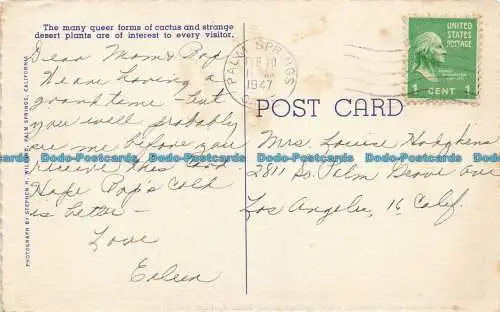 The many queer forms of cactus and strange
desert plants are of interest to every visitor.
Dear Mom & Pop
We are having a
grand time – but
you will probably
see me before you
receive this card
Hope Pop's cold
is better –
Love
Eileen
PHOTOGRAPH BY STEPHEN H. WILLARD, PALM SPRINGS, CALIFORNIA
PALM SPRINGS
FEB 10
1947
POST CARD
UNITED
STATES
POSTAGE
1 CENT 1
Mrs. Louise Hodgkens
2811 So. Palm Grove ave
Los Angeles, 16 Calif.
Dodo-Postcards Dodo-Postcards Dodo-Postcards Dodo-Postcards Dodo-Postcards